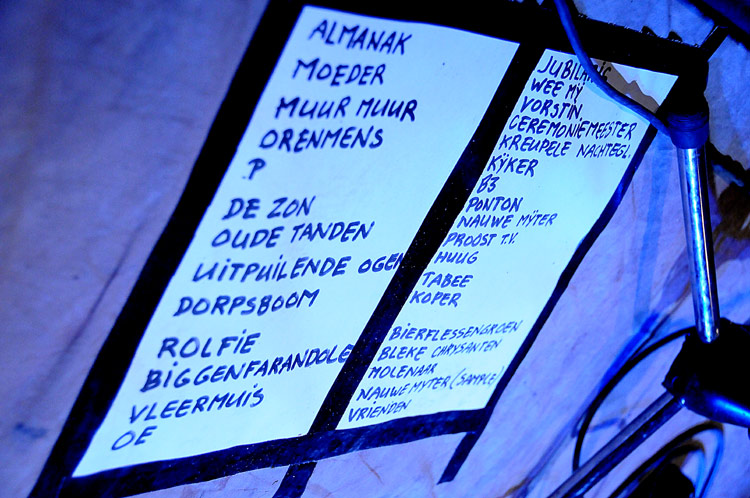 ALMANAK
MOEDER
MUUR MUUR
ORENMENS
.P
DE ZON
OUDE TANDEN
UITPUILENDE OGEN
DORPSBOOM
ROLFIE
BIGGENFARANDOLE
VLEERMUIS
OE
WEE MY
VORSTIN
CEREMONIEMEESTER
KREUPELE NACHTEGL.
KŸKER
B3
PONTON
NAUWE MŸTER
PROOST T.V.
HUUG
TABEE
KOPER
BIERFLESSENGROEN
BLEKE CHRYSANTEN
MOLENAAR
NAUWE MYTER (SAMPLE)
VRIENDEN